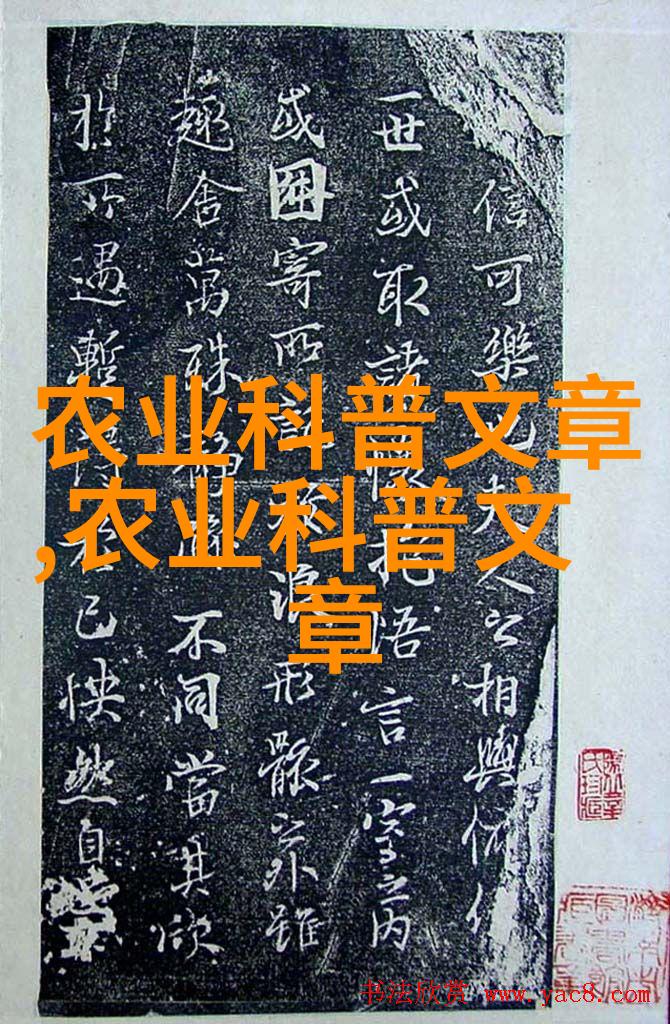 信可樂也夫人之相與俯仰
一世或取諸懷抱悟言一室之內
或因寄所託放浪形骸之外雖
趣舍萬殊靜躁不同當其欣
於所遇暫得於己快然自
农业科普文章
,农业科普文
章
书法欣赏 www.yac8.com